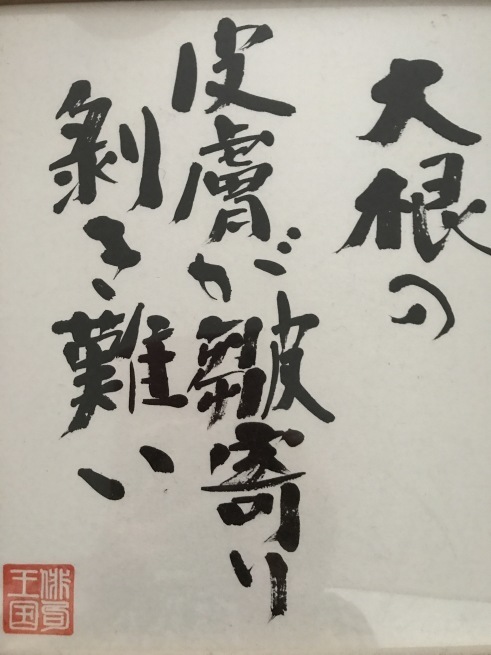 大根の
皮膚が皺寄り
剝き難い
俳句王国